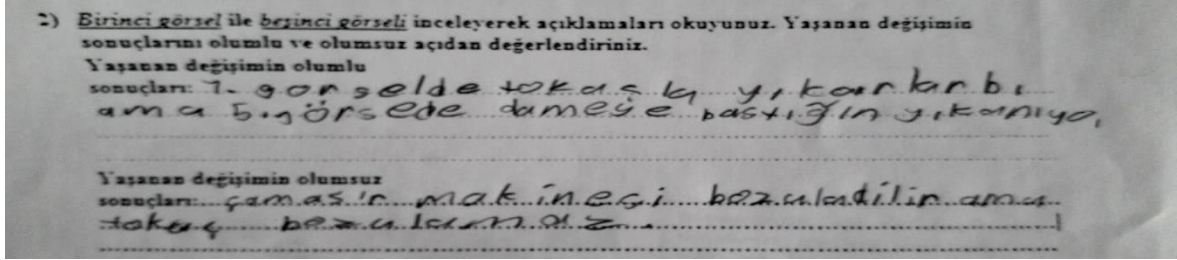 2) Birinci görsel ile beşinci görseli inceleyerek açıklamaları okuyunuz. Yaşanan değişimin
sonuçlarını olumlu ve olumsuz açıdan değerlendiriniz.
Yaşanan değişimin olumlu
sonuçları: 1. gorselde tokaş la yıkarlarbı
ama 5. görsede dameye bastığın yıkanıyo,
Yaşanan değişimin olumsuz
sonuçları: çamaşır makinesi bozuladilir ama
tokaç bozulamaz.